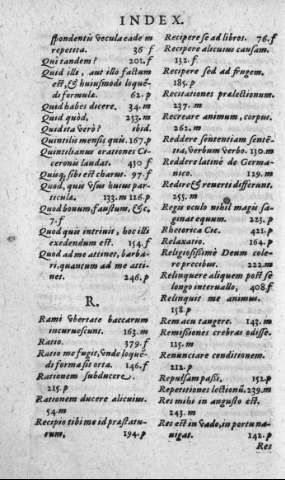 INDEX.
spondentis vecula eadem
repetita. 36 f
Qui tandem? 201. f
Quid illi, aut illo factum
est, & huiusmodi loquē-
di formula. 62. p
Quid habes dicere. 34. m
Quid quòd, 253. m
Quid ita verò? ibid.
Quintilis mensis quis. 167. p
Quintilianus orationes Ci-
ceronis laudat. 430 f
Quisq; sibi est charus. 97. f
Quod, quis vsus huius par-
ticula. 133. m 126. p
Quod bonum, faustum, &c,
7. f
Quod quis intriuit, hoc illi
exedendum est. 154. f
Quod ad me attinet, barba-
rè, quantum ad me atti-
net. 246. p
R.
Rami vbertate baccarum
incuruescunt. 163. m
Ratio. 379. f
Ratio me fugit, vnde loquē-
di forma sit orta. 146. f
Rationem subducere.
215. p
Rationem ducere alicuius.
54. m
Recipio tibi me id præstatu-
rum, 194. p
Recipere se ad libros. 76. f
Recipere alicuius causam.
132. f
Recipere sed ad frugem.
185. p
Recitationes prælectionum.
237. m
Recreare animum, corpus.
262. m
Reddere sententiam sentē-
tia, verbum verbo. 130. m
Reddere latinè de Germa-
nico. 129. m
Redire & reuerti differunt.
255. m
Regis oculo nihil magis sa-
ginat equum. 223. p
Rhetorica Cic. 421. p
Relaxatio. 164. p
Religiosissimè Deum cole-
re precibus. 222. m
Relinquere aliquem post se
longo interuallo, 408. f
Relinquit me animus.
158. p
Rem acu tangere. 143. m
Remissiones crebras odisse.
125. m
Renunciare conditionem.
212. p
Repulsam passi. 152. p
Repetitiones lectionū. 239. m
Res mihi in angusto est.
243. m
Res est in vado, in portu na-
uigat. 142. p
Res